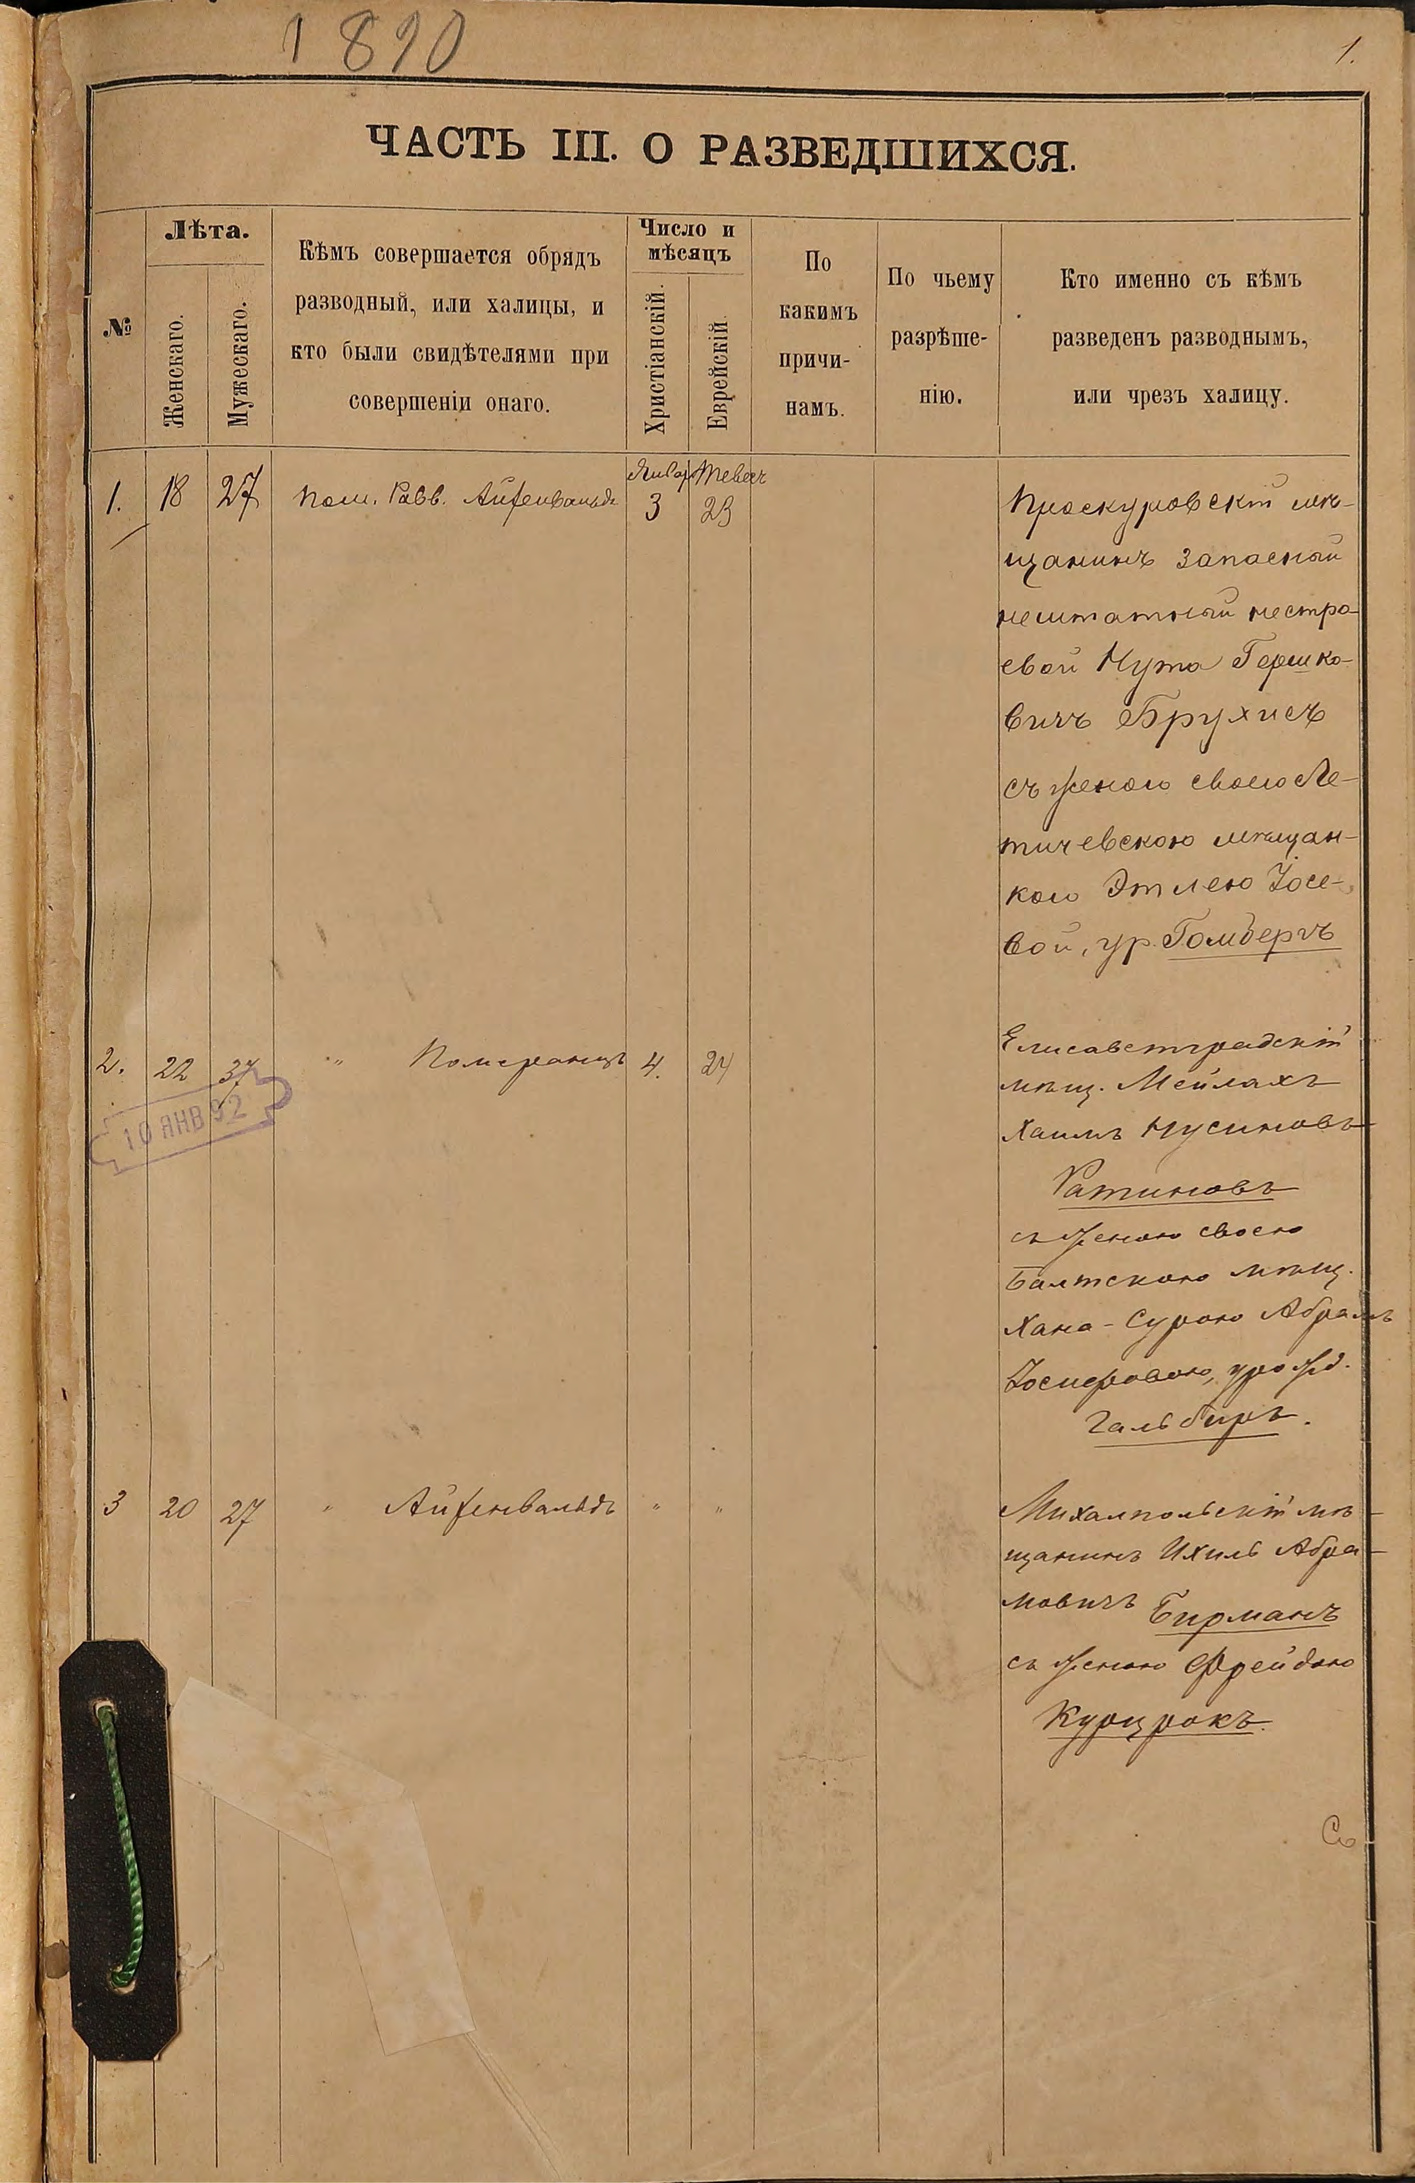 1890
1.
ЧАСТЬ III. О РАЗВЕДШИХСЯ.
№
Лѣта.
Женскаго.
Мужескаго.
Кѣмъ совершается обрядъ
разводный, или халицы, и
кто были свидѣтелями при
совершеніи онаго.
Число и
мѣсяцъ
Христіанскій.
Еврейскій.
По
какимъ
причи-
намъ.
По чьему
разрѣше-
нію.
Кто именно съ кѣмъ
разведенъ разводнымъ,
или чрезъ халицу.
1. 18 27 Пом. Равв. Айзенвальдъ
Январ Тевесъ
3 23
Проскуровскій мѣ-
щанинъ запасный
нештатный нестро-
евой Нута Гершко-
вичъ Брухисъ
съ женою своею Ле-
тичевскою мѣщан-
кою Этлею Іосе-
вой, ур. Гомбергъ
2. 22 37 " Померанцъ 4. 24
10 ЯНВ 92
Елисаветградскій
мѣщ. Мейлахъ
Хаимъ Нусиновъ
Ратиновъ
съ женою своею
Балтскою мѣщ.
Хана-Сурою Абрамъ
Іосифовою, урожд.
Гальбиръ.
3 20 27 " Айзенвальдъ " "
Михалпольскій мѣ-
щанинъ Ихиль Абра-
мовичъ Бирманъ
съ женою Фрейдою
Курцрокъ.